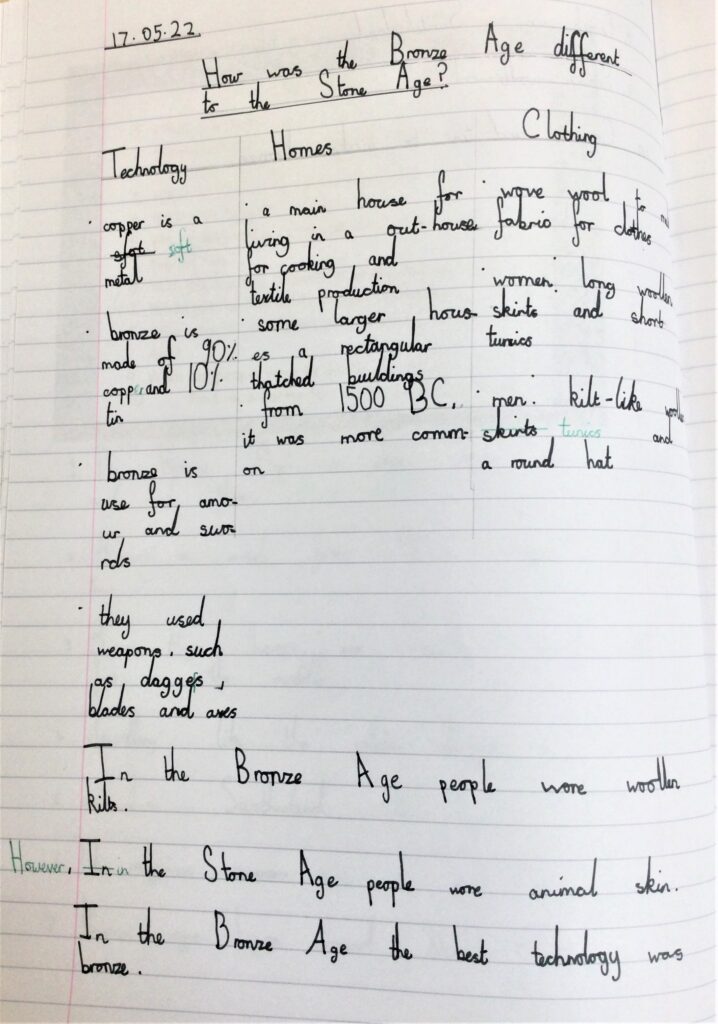 17.05.22
How was the Bronze Age different
to the Stone Age?
Technology
· copper is a
sfot soft
metal
· bronze is
made of 90%
copper and 10%
tin
· bronze is
use for, amo-
ur, and swo-
rds
· they used
weapons, such
as dagges,
blades and axes
Homes
· a main house for
living in a out-house
for cooking and
textile production
· some larger hous-
es a rectangular
thatched buildings
· from 1500 BC,
it was more comm-
on
Clothing
· wove wool to
fabric for clothes
· women: long woollen
skirts and short
tunics
· men: kilt-like woollen
skirts tunics and
a round hat
In the Bronze Age people wore woollen
kilts.
However, In in the Stone Age people wore animal skin.
In the Bronze Age the best technology was
bronze.